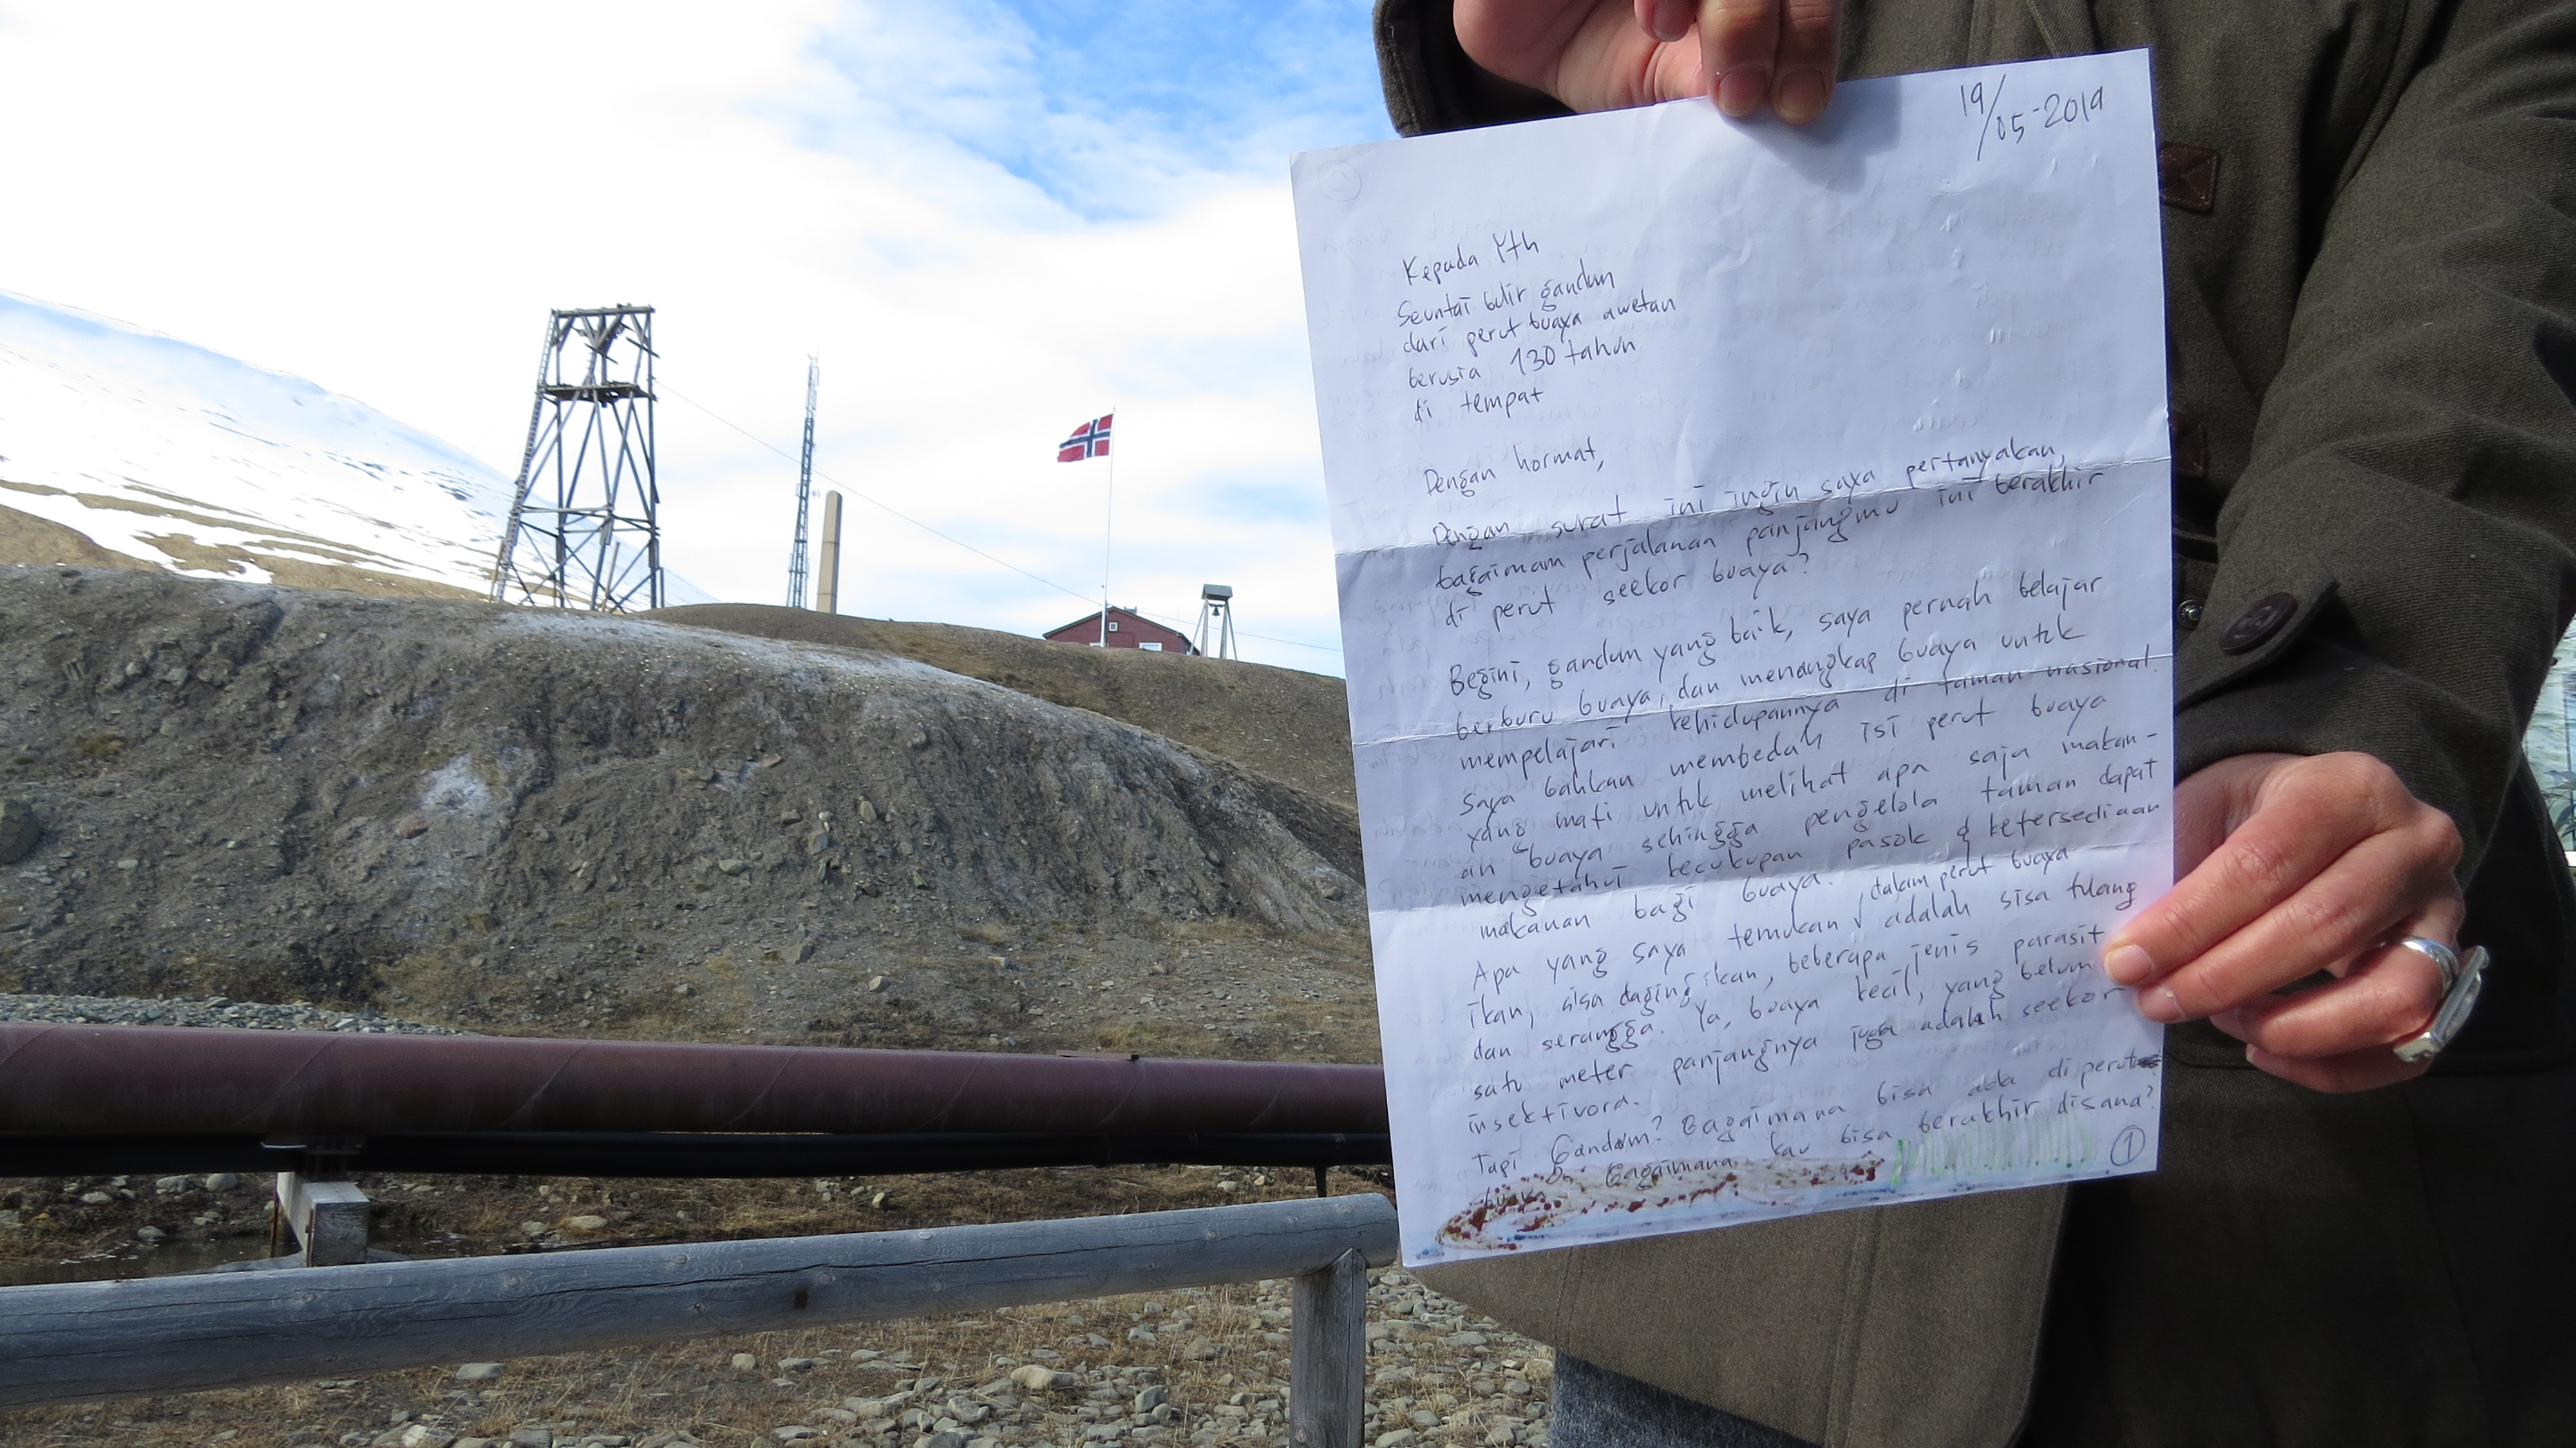 19/05-2019
Kepada Yth
Seuntai bulir gandum
dari perut buaya awetan
berusia 130 tahun
di tempat
Dengan hormat,
Dengan surat ini ingin saya pertanyakan,
bagaimam perjalanan panjangmu ini berakhir
di perut seekor buaya?
Begini, gandum yang baik, saya pernah belajar
berburu buaya, dan menangkap buaya untuk
mempelajari kehidupannya di taman nasional.
Saya bahkan membedah isi perut buaya
yang mati untuk melihat apa saja makan-
an buaya sehingga pengelola taman dapat
mengetahui kecukupan pasok & ketersediaan
makanan bagi buaya.
Apa yang saya temukan √ dalam perut buaya adalah sisa tulang
ikan, sisa daging ikan, beberapa jenis parasit
dan serangga. Ya, buaya kecil, yang belum
satu meter panjangnya juga adalah seekor
insektivora.
Tapi Gandum? Bagaimana bisa ada di perut
buaya Bagaimana kau bisa berakhir disana?
1